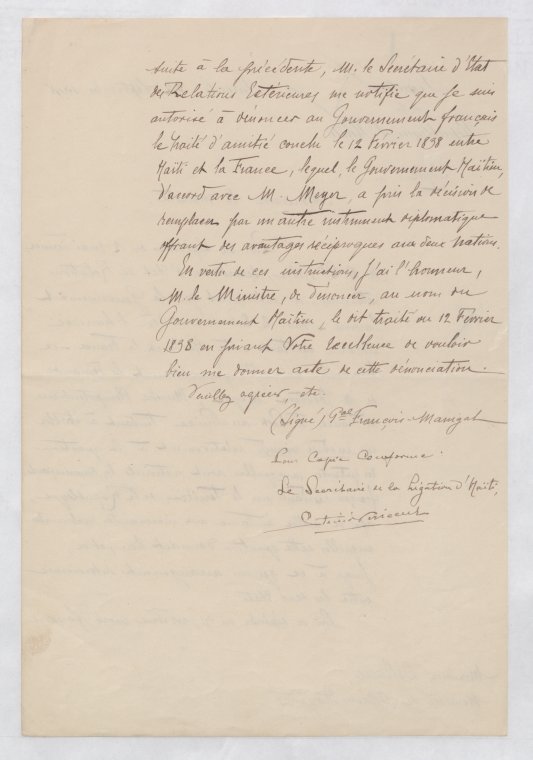 suite à la précédente, M. le Secrétaire d'Etat
des Relations Extérieures me notifie que je suis
autorisé à dénoncer au Gouvernement français
le traité d'amitié conclu le 12 Février 1838 entre
Haïti et la France, lequel, le Gouvernement Haïtien,
d'accord avec M. Meyer, a pris la décision de
remplacer par un autre instrument diplomatique
offrant des avantages réciproques aux deux nations.
En vertu de ces instructions, j'ai l'honneur,
M. le Ministre, de dénoncer, au nom du
Gouvernement Haïtien, le dit traité du 12 Février
1838 en priant Votre Excellence de vouloir
bien me donner acte de cette dénonciation.
Veuillez agréer, etc.
(Signé) Gal François-Manigat
Pour Copie Conforme:
Le Secrétaire de la Légation d'Haïti,